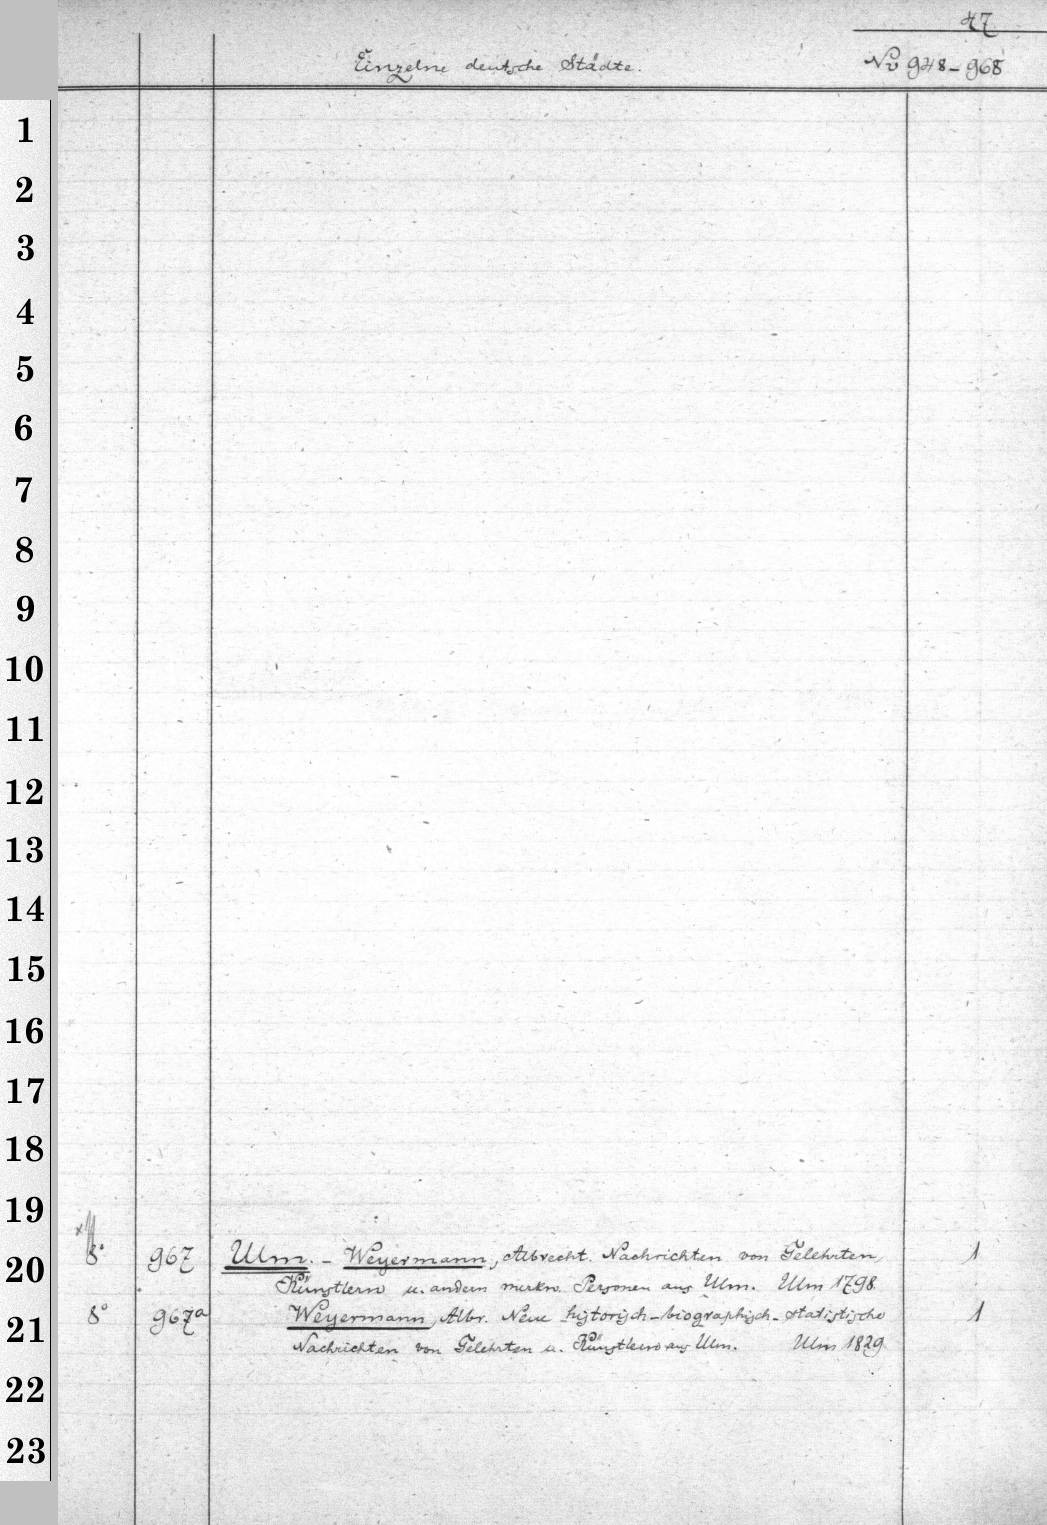 47
Einzelne deutsche Städte. No 948-968
1
2
3
4
5
6
7
8
9
10
11
12
13
14
15
16
17
18
19
20
8° 967 Ulm. - Weyermann, Albrecht. Nachrichten von Gelehrten, 1
Künstlern u. andern merkw. Personen aus Ulm. Ulm 1798
21
8° 967a Weyermann, Albr. Neue historisch-biographisch-statistische 1
Nachrichten von Gelehrten u. Künstlern aus Ulm. Ulm 1829
22
23